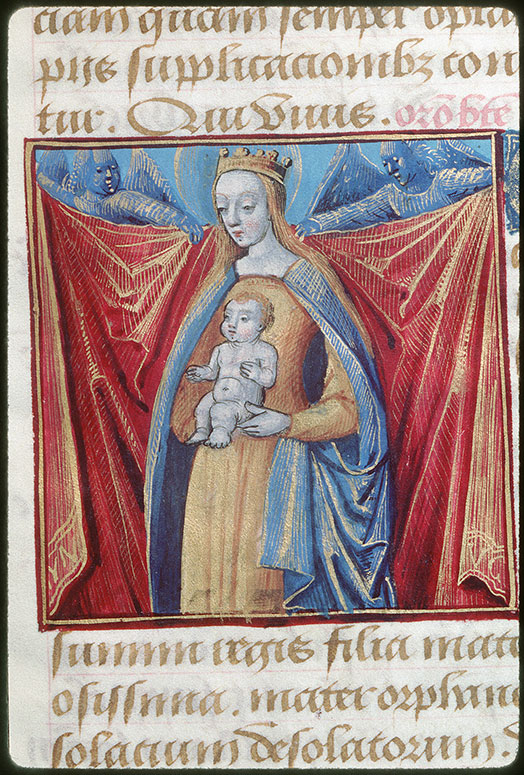 ciam quam semper opta
piis supplicacionibz con
tur. Qui vivis. orõ bte
summi regis filia mate
osissima. mater orphano
solacium desolatorum.